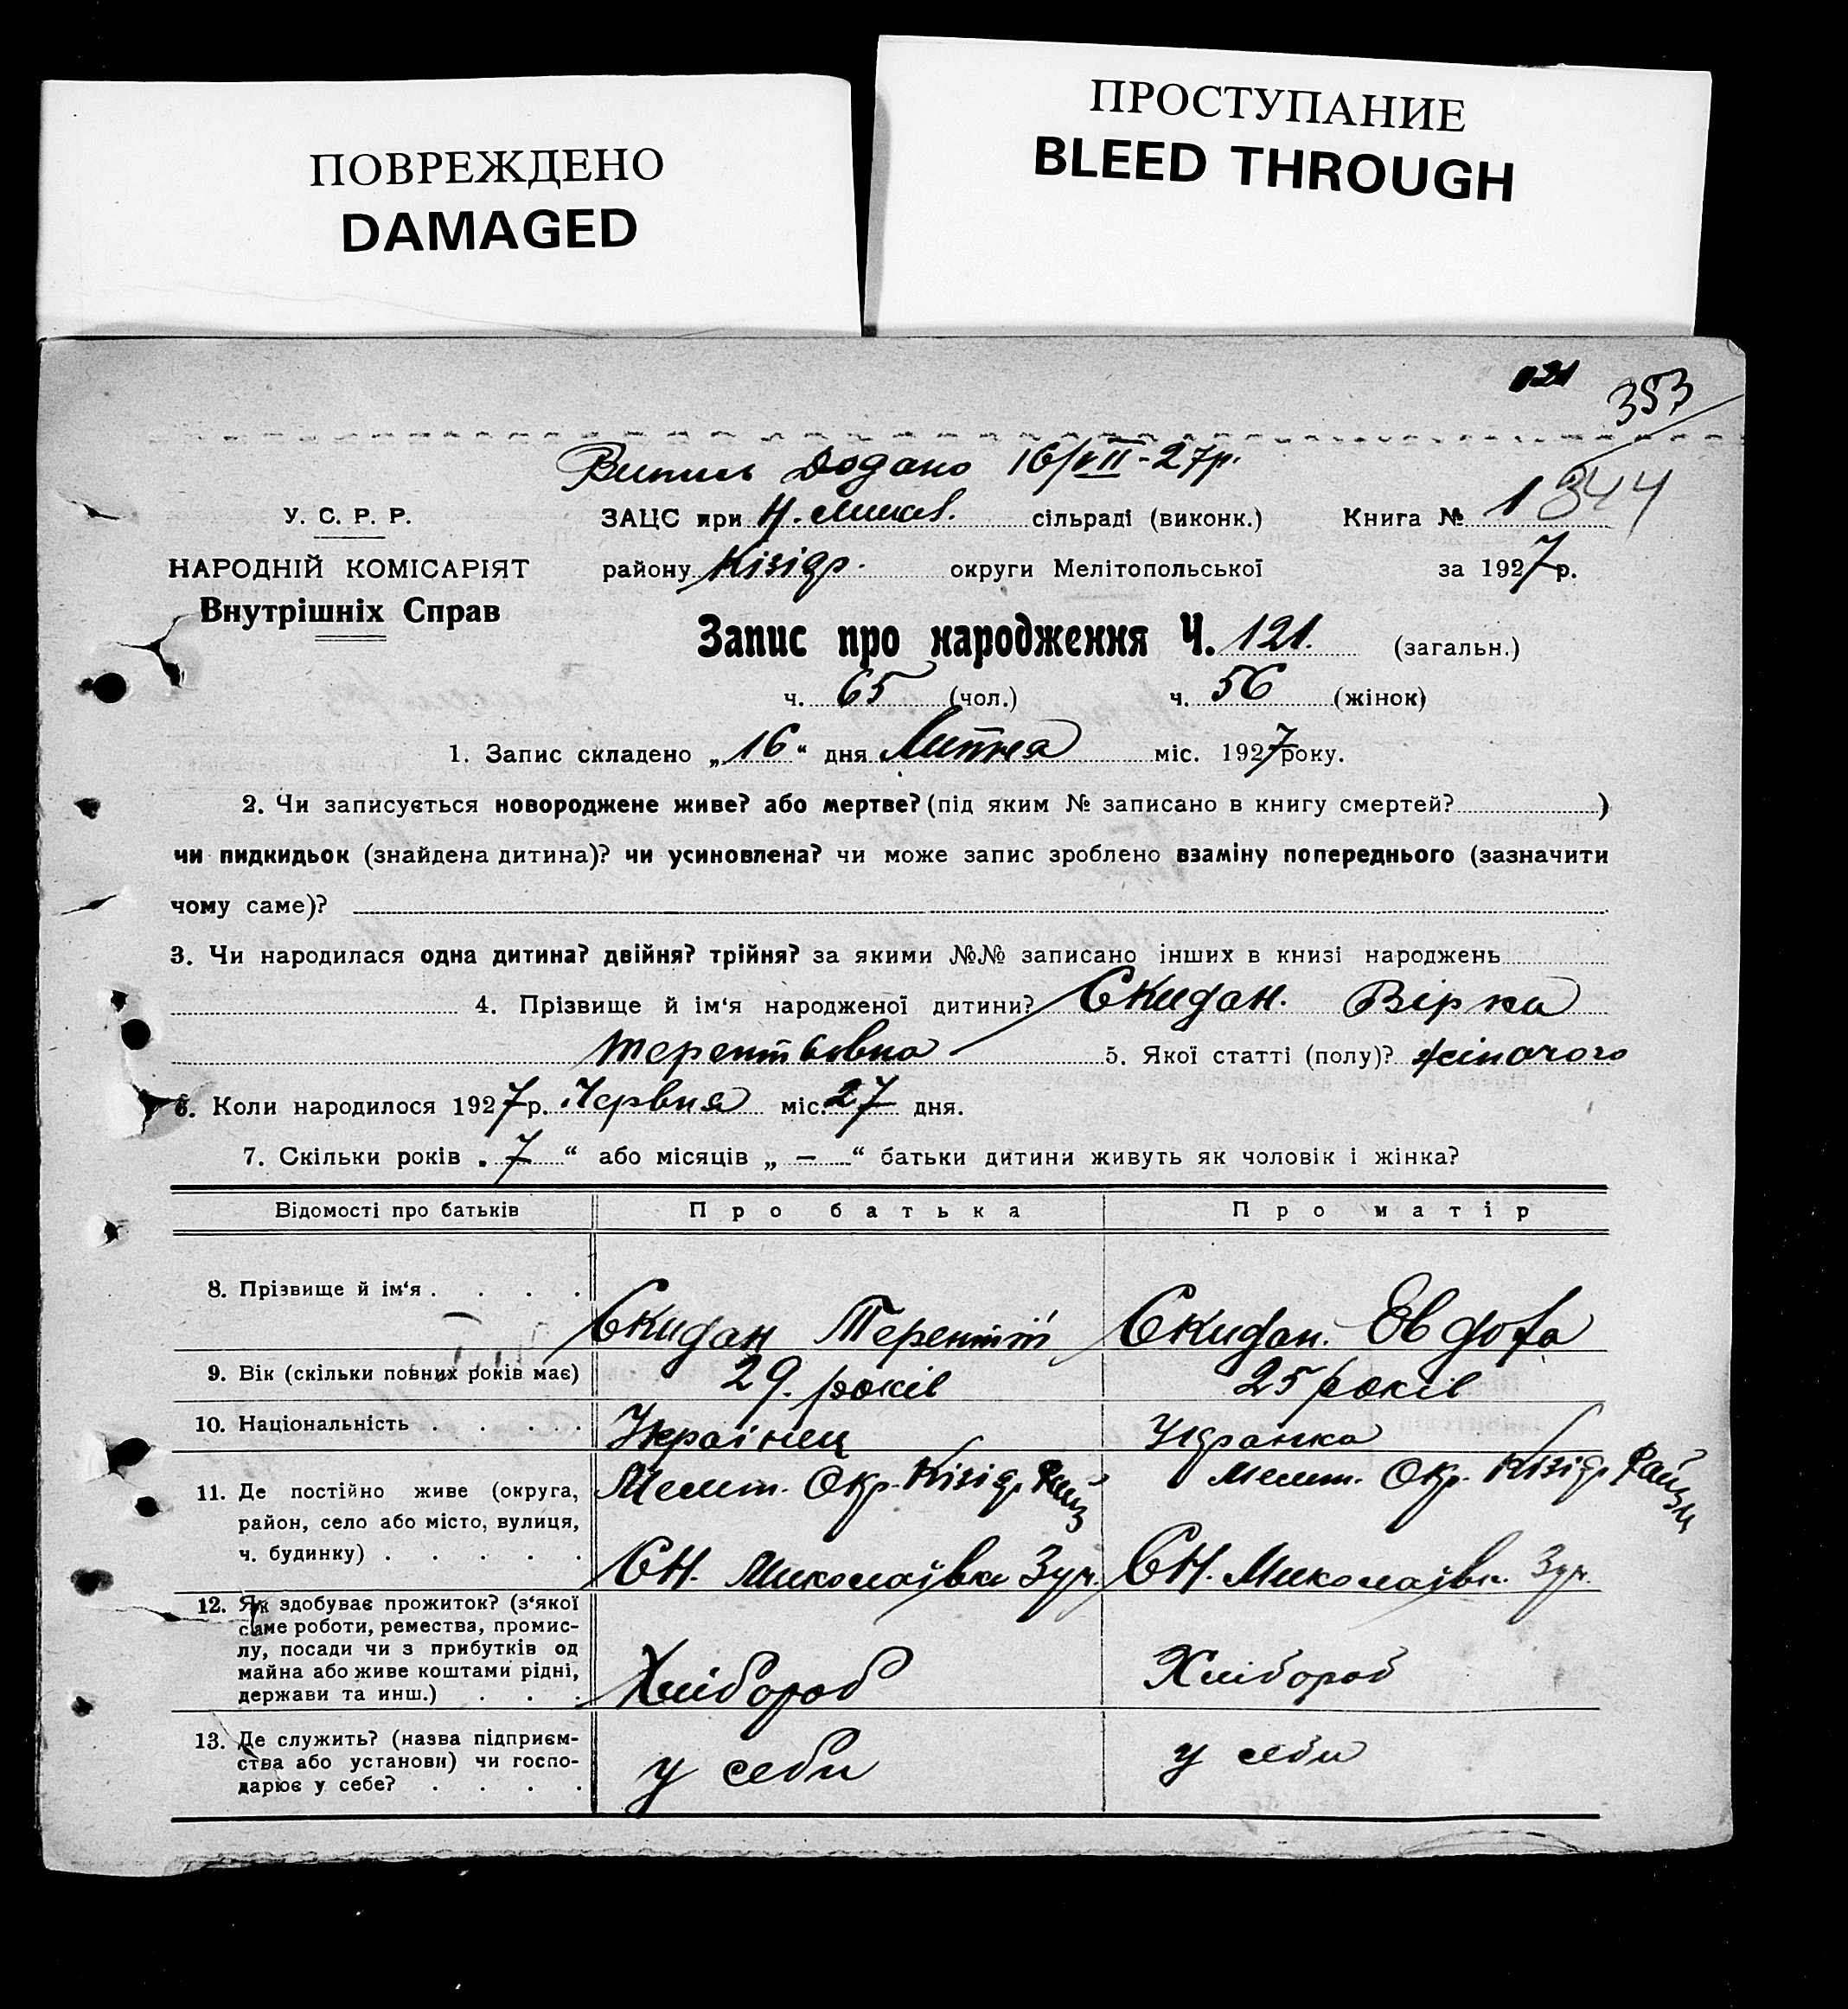 ПОВРЕЖДЕНО
DAMAGED
ПРОСТУПАНИЕ
BLEED THROUGH
021
353
Випись Додано 16/VII-27р.
У. С. Р. Р.
ЗАЦС при Н. Микол. сільраді (виконк.) Книга № 1 344
НАРОДНІЙ КОМІСАРІЯТ
району Кізідр. округи Мелітопольської за 1927 р.
Внутрішніх Справ
Запис про народження Ч. 121. (загальн.)
ч. 65 (чол.) ч. 56 (жінок)
1. Запис складено „16“ дня Липня міс. 1927 року.
2. Чи записується новороджене живе? або мертве? (під яким № записано в книгу смертей? )
чи пидкидьок (знайдена дитина)? чи усиновлена? чи може запис зроблено взаміну попереднього (зазначити
чому саме)?
3. Чи народилася одна дитина? двійня? трійня? за якими №№ записано інших в книзі народжень
4. Прізвище й ім‘я народженої дитини? Скидан. Вірка
Терентьовна 5. Якої статті (полу)? жіночого
6. Коли народилося 1927 р. Червня міс. 27 дня.
7. Скільки років „7“ або місяців „—“ батьки дитини живуть як чоловік і жінка?
Відомості про батьків Про батька Про матір
8. Прізвище й ім‘я . . . . Скидан Терентій Скидан. Евдоха
9. Вік (скільки повних років має) 29. років 25 років
10. Національність . . . . . Українец Украінка
11. Де постійно живе (округа, Мелит. Окр. Кізідр. Мелит. Окр. Кізідр. Району
район, село або місто, вулиця,
ч. будинку) . . . . . СН. Миколаївка 3 уч. СН. Миколаївк. 3 уч.
12. Як здобуває прожиток? (з‘якої
саме роботи, ремества, промис-
лу, посади чи з прибутків од
майна або живе коштами рідні, Хлібороб Хлібороб
держави та инш.) . . .
13. Де служить? (назва підприєм-
ства або установи) чи госпо- у себи у себи
дарює у себе? . . . .